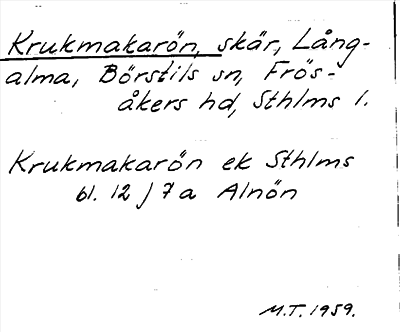 Krukmakarön, skär, Lång-
alma, Börstils sn, Frös-
åkers hd, Sthlms l.
Krukmakarön ek Sthlms
bl. 12 J 7a Alnön
M.T. 1959.